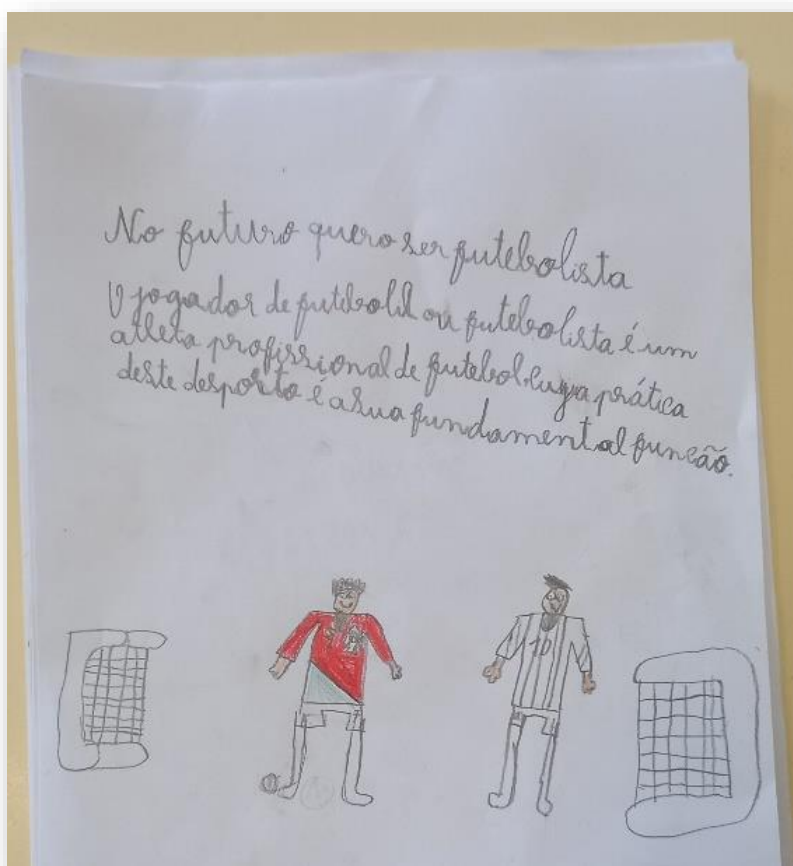 No futuro quero ser futebolista
O jogador de futebol ou futebolista é um
atleta profissional de futebol cuja prática
deste desporto é a sua fundamental função.
10